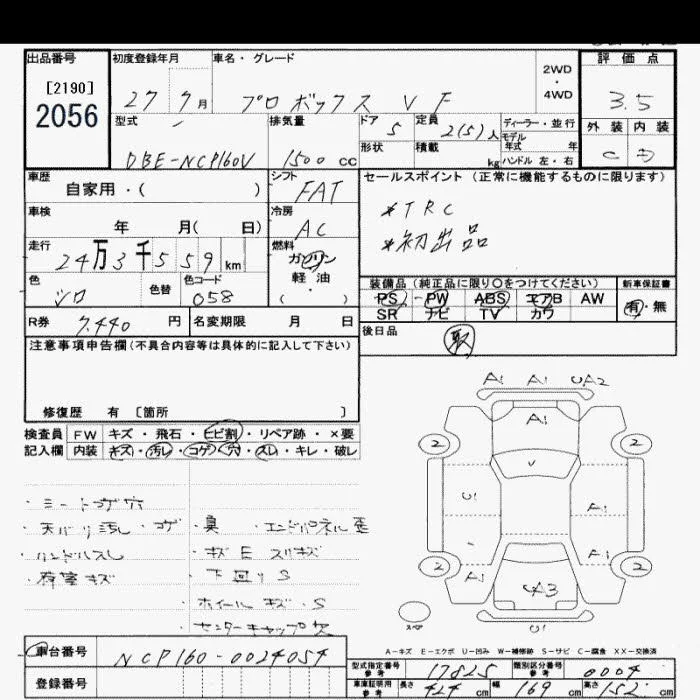 出品番号 初度登録年月 車名・グレード 2WD・4WD 評価点
[2190]
2056
27 7月 プロボックス VF 3.5
型式 排気量 ドア 5 定員 2(5)人 ディーラー・並行 外装 内装
モデル年式 年式
DBE-NCP160V 1500cc 形状 積載 kg ハンドル 左・右 C D
車歴 シフト セールスポイント(正常に機能するものに限ります)
自家用・( ) FAT
*TRC
車検 冷房
年 月( 日) AC
*初出品
走行 燃料
24万3千559km ガソリン
軽・油
( )
色 色替 色コード
シロ 058
装備品(純正品に限り○をつけてください) 新車保証書
PS PW ABS エアB AW 有・無
SR ナビ TV カワ
R券 7,440円 名変期限 月 日
後日品 取
注意事項申告欄(不具合内容等は具体的に記入して下さい)
修復歴 有 [箇所 ]
検査員 FW キズ・飛石・ヒビ割・リペア跡・×要
記入欄 内装 キズ・汚レ・コゲ・穴・スレ・キレ・破レ
A1 A1 UA2
A1
2 2
V
U1 A1
A1
2 2
A1
UA3
スペア U1
・シートコゲ穴
・天バリ汚レ・コゲ ・臭 ・エンドパネル歪
・ハンドルスレ ・ガラスキズ
・荷室キズ ・下回りS
・ホイールキズ・S
・センターキャップ欠
A-キズ E-エクボ U-凹み W-補修跡 S-サビ C-腐食 XX-交換済
車台番号 NCP160-0024054
型式指定番号 参考 17825 類別区分番号 参考 0004
登録番号
車庫証明用 参考 長さ 424cm 幅 169cm 高さ 152cm